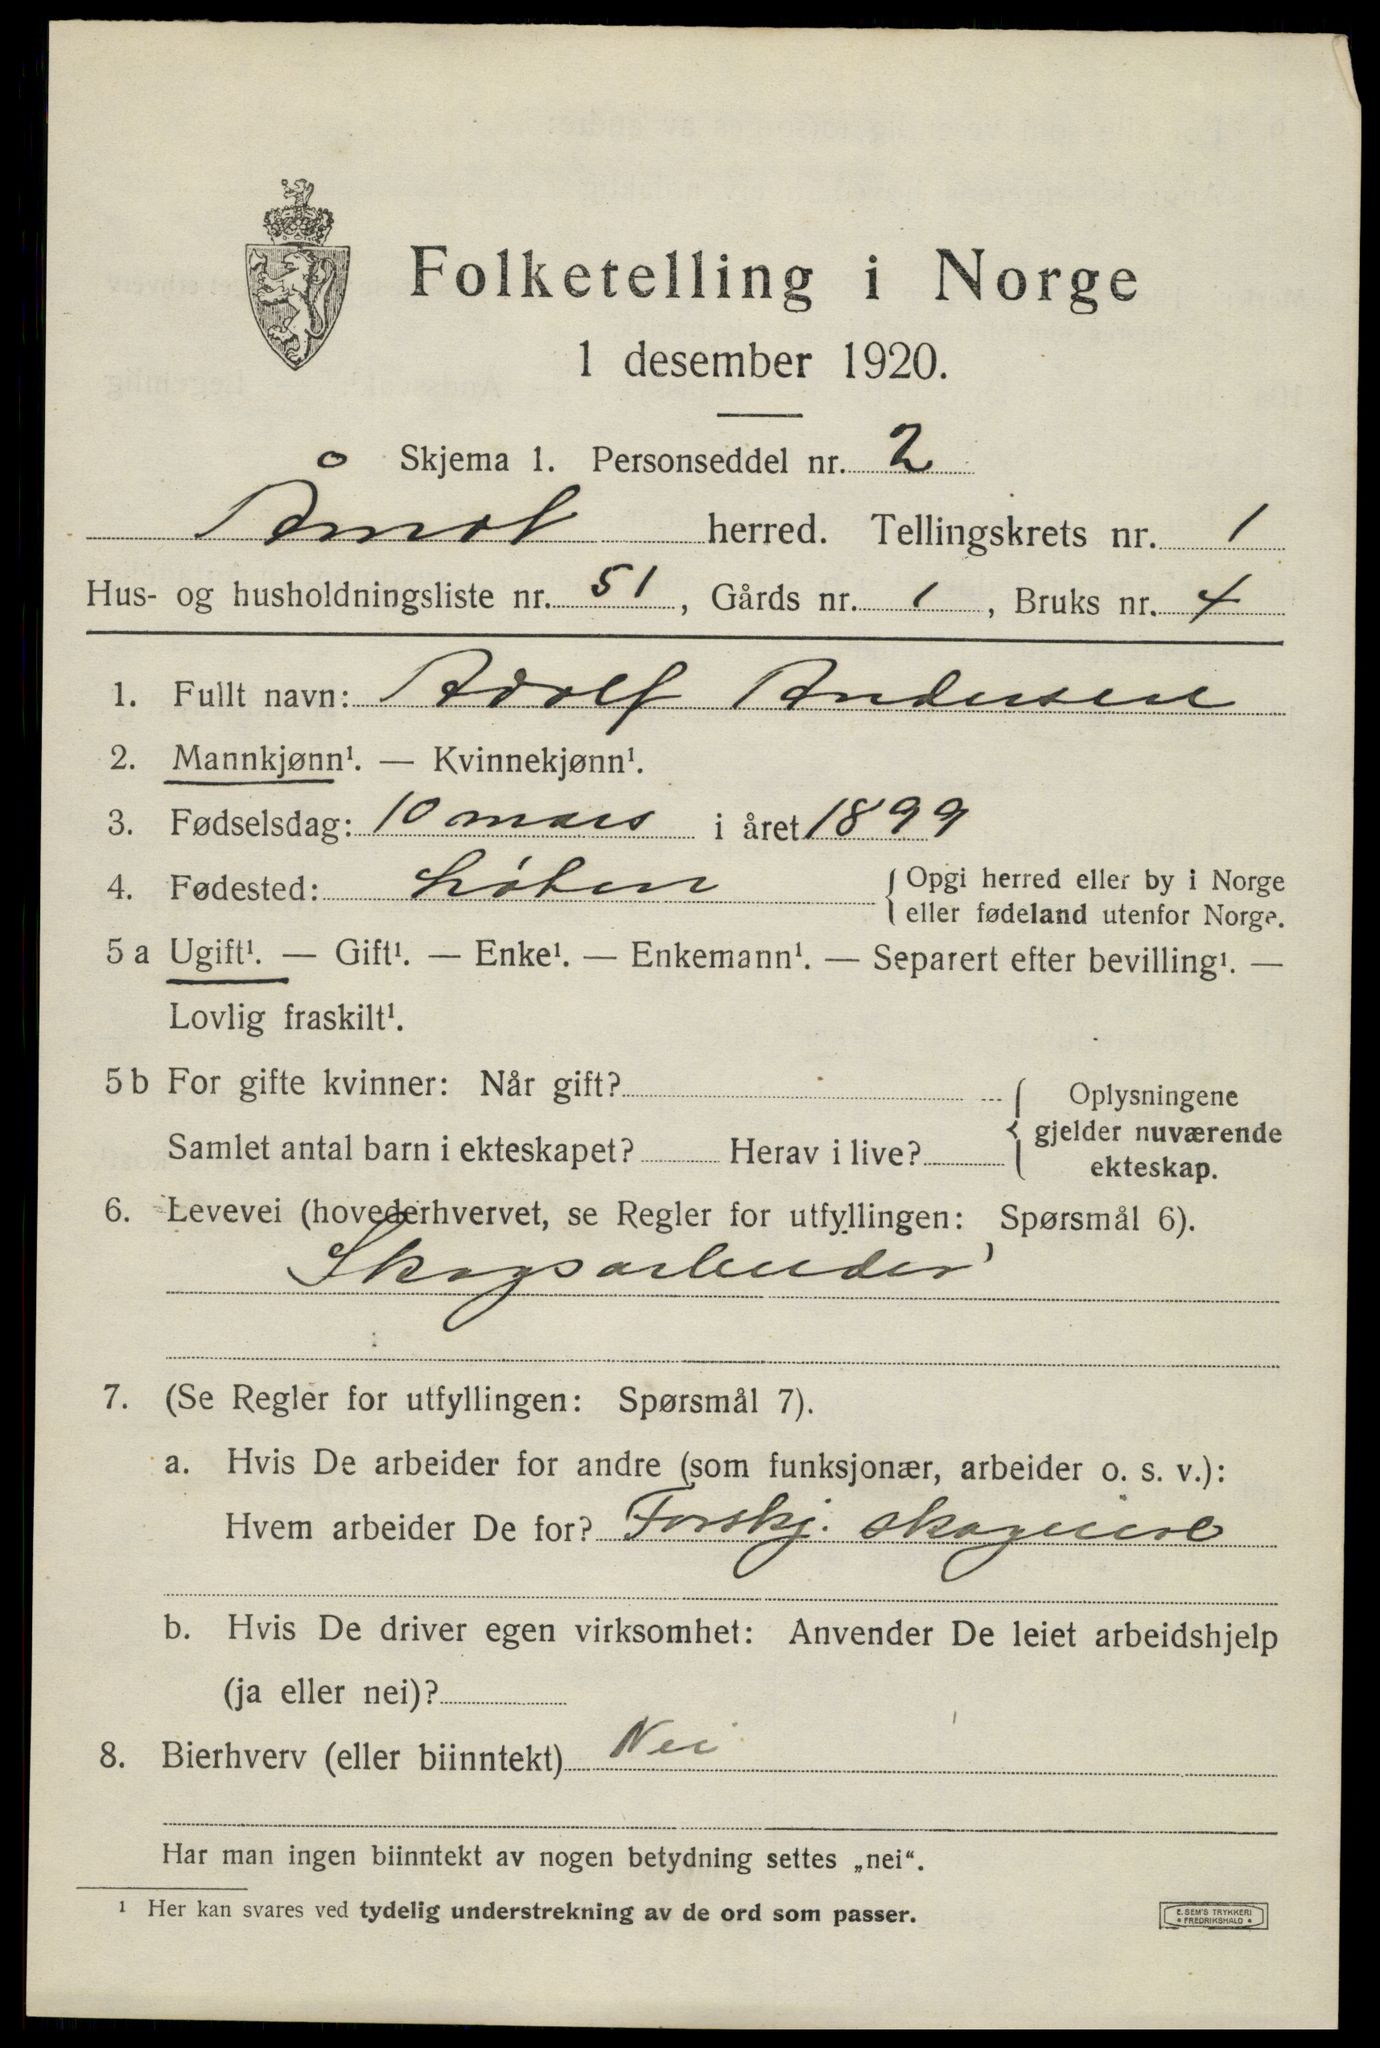 Folketelling i Norge
1 desember 1920.
Skjema 1. Personseddel nr. 2
Åmot herred. Tellingskrets nr. 1
Hus- og husholdningsliste nr. 51, Gårds nr. 1, Bruks nr. 4
1. Fullt navn: Adolf Andersen
2. Mannkjønn¹. — Kvinnekjønn¹.
3. Fødselsdag: 10 mars i året 1899
4. Fødested: Løten { Opgi herred eller by i Norge
eller fødeland utenfor Norge.
5 a Ugift¹. — Gift¹. — Enke¹. — Enkemann¹. — Separert efter bevilling¹. —
Lovlig fraskilt¹.
5 b For gifte kvinner: Når gift? { Oplysningene
gjelder nuværende
Samlet antal barn i ekteskapet? Herav i live?
ekteskap.
6. Levevei (hovederhvervet, se Regler for utfyllingen: Spørsmål 6).
Skogsarbeider
7. (Se Regler for utfyllingen: Spørsmål 7).
a. Hvis De arbeider for andre (som funksjonær, arbeider o. s. v.):
Hvem arbeider De for? Forskj. skogeiere
b. Hvis De driver egen virksomhet: Anvender De leiet arbeidshjelp
(ja eller nei)?
8. Bierhverv (eller biinntekt) Nei
Har man ingen biinntekt av nogen betydning settes „nei“.
¹ Her kan svares ved tydelig understrekning av de ord som passer.
E. SEM'S TRYKKERI
FREDRIKSHALD